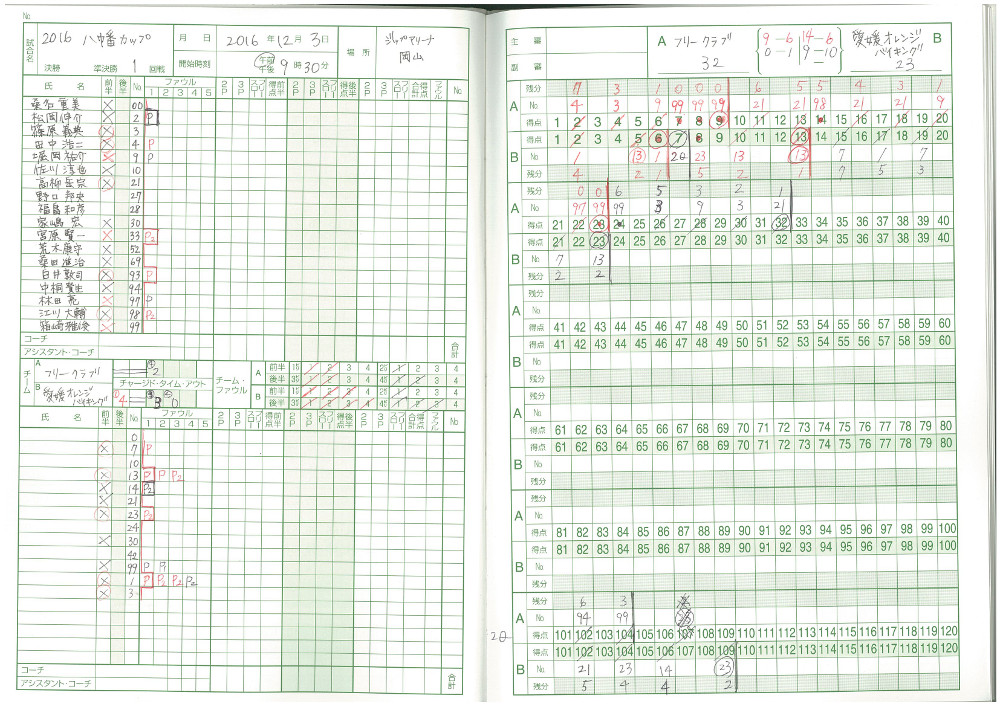 No
試合名 2016 八幡カップ 月 日 2016 年 12 月 3 日 場所 ジップアリーナ 岡山
決勝 準決勝 1 回戦 開始時刻 午前 午後 9 時 30 分
氏 名 前半 後半 No ファウル 1 2 3 4 5 2P 3P スロー フリー 得点 前半 2P 3P スロー フリー 得点 後半 2P 3P スロー フリー 合計 得点 ファウル No
桑名 恵美 00
松岡 伸介 2 P
篠原 義典 3
田中 浩二 4 P
堀岡 祐介 9 P
佐川 淳也 10
高柳 岳宗 21
野口 邦央 27
福島 和彦 28
家嶋 宏 30
宮原 賢一 33 P2
荒木 康守 52
桑田 進治 69
白井 敦司 93 P
中桐 賢生 94
林田 亮 97 P
江川 大輔 98 P2
99
コーチ
アシスタント・コーチ
合計
チーム A フリークラブ
B 愛媛オレンジバイキング
チャージド・タイム・アウト
チーム・ファウル
A 前半 15 1 2 3 4 25 1 2 3 4
後半 35 1 2 3 4 45 1 2 3 4
B 前半 15 1 2 3 4 25 1 2 3 4
後半 35 1 2 3 4 45 1 2 3 4
氏 名 前半 後半 No ファウル 1 2 3 4 5 2P 3P スロー フリー 得点 前半 2P 3P スロー フリー 得点 後半 2P 3P スロー フリー 合計 得点 ファウル No
0
7 P
10
13 P P P2
14 P2
21
23 P2
24
30
42
99 P P
1 P P2 P2 P2
3
コーチ
アシスタント・コーチ
合計
主審
副審
A フリークラブ 32
9-6 14-6
0-1 9-10
愛媛オレンジバイキング 23 B
残分 7 3 1 0 0 0 6 5 5 4 3 1
A No 4 3 9 99 99 99 21 21 98 21 21 9
得点 1 2 3 4 5 6 7 8 9 10 11 12 13 14 15 16 17 18 19 20
得点 1 2 3 4 5 6 7 8 9 10 11 12 13 14 15 16 17 18 19 20
B No 1 13 1 20 23 13 13 7 1 7
残分 4 2 1 5 2 1 7 5 3
残分 0 0 6 5 3 2 1
A No 97 99 99 3 9 3 21
得点 21 22 23 24 25 26 27 28 29 30 31 32 33 34 35 36 37 38 39 40
得点 21 22 23 24 25 26 27 28 29 30 31 32 33 34 35 36 37 38 39 40
B No 7 13
残分 2 2
残分
A No
得点 41 42 43 44 45 46 47 48 49 50 51 52 53 54 55 56 57 58 59 60
得点 41 42 43 44 45 46 47 48 49 50 51 52 53 54 55 56 57 58 59 60
B No
残分
残分
A No
得点 61 62 63 64 65 66 67 68 69 70 71 72 73 74 75 76 77 78 79 80
得点 61 62 63 64 65 66 67 68 69 70 71 72 73 74 75 76 77 78 79 80
B No
残分
残分
A No
得点 81 82 83 84 85 86 87 88 89 90 91 92 93 94 95 96 97 98 99 100
得点 81 82 83 84 85 86 87 88 89 90 91 92 93 94 95 96 97 98 99 100
B No
残分
残分 6 3
A No 94 99
20 得点 101 102 103 104 105 106 107 108 109 110 111 112 113 114 115 116 117 118 119 120
得点 101 102 103 104 105 106 107 108 109 110 111 112 113 114 115 116 117 118 119 120
B No 21 23 14 23
残分 5 4 4 2